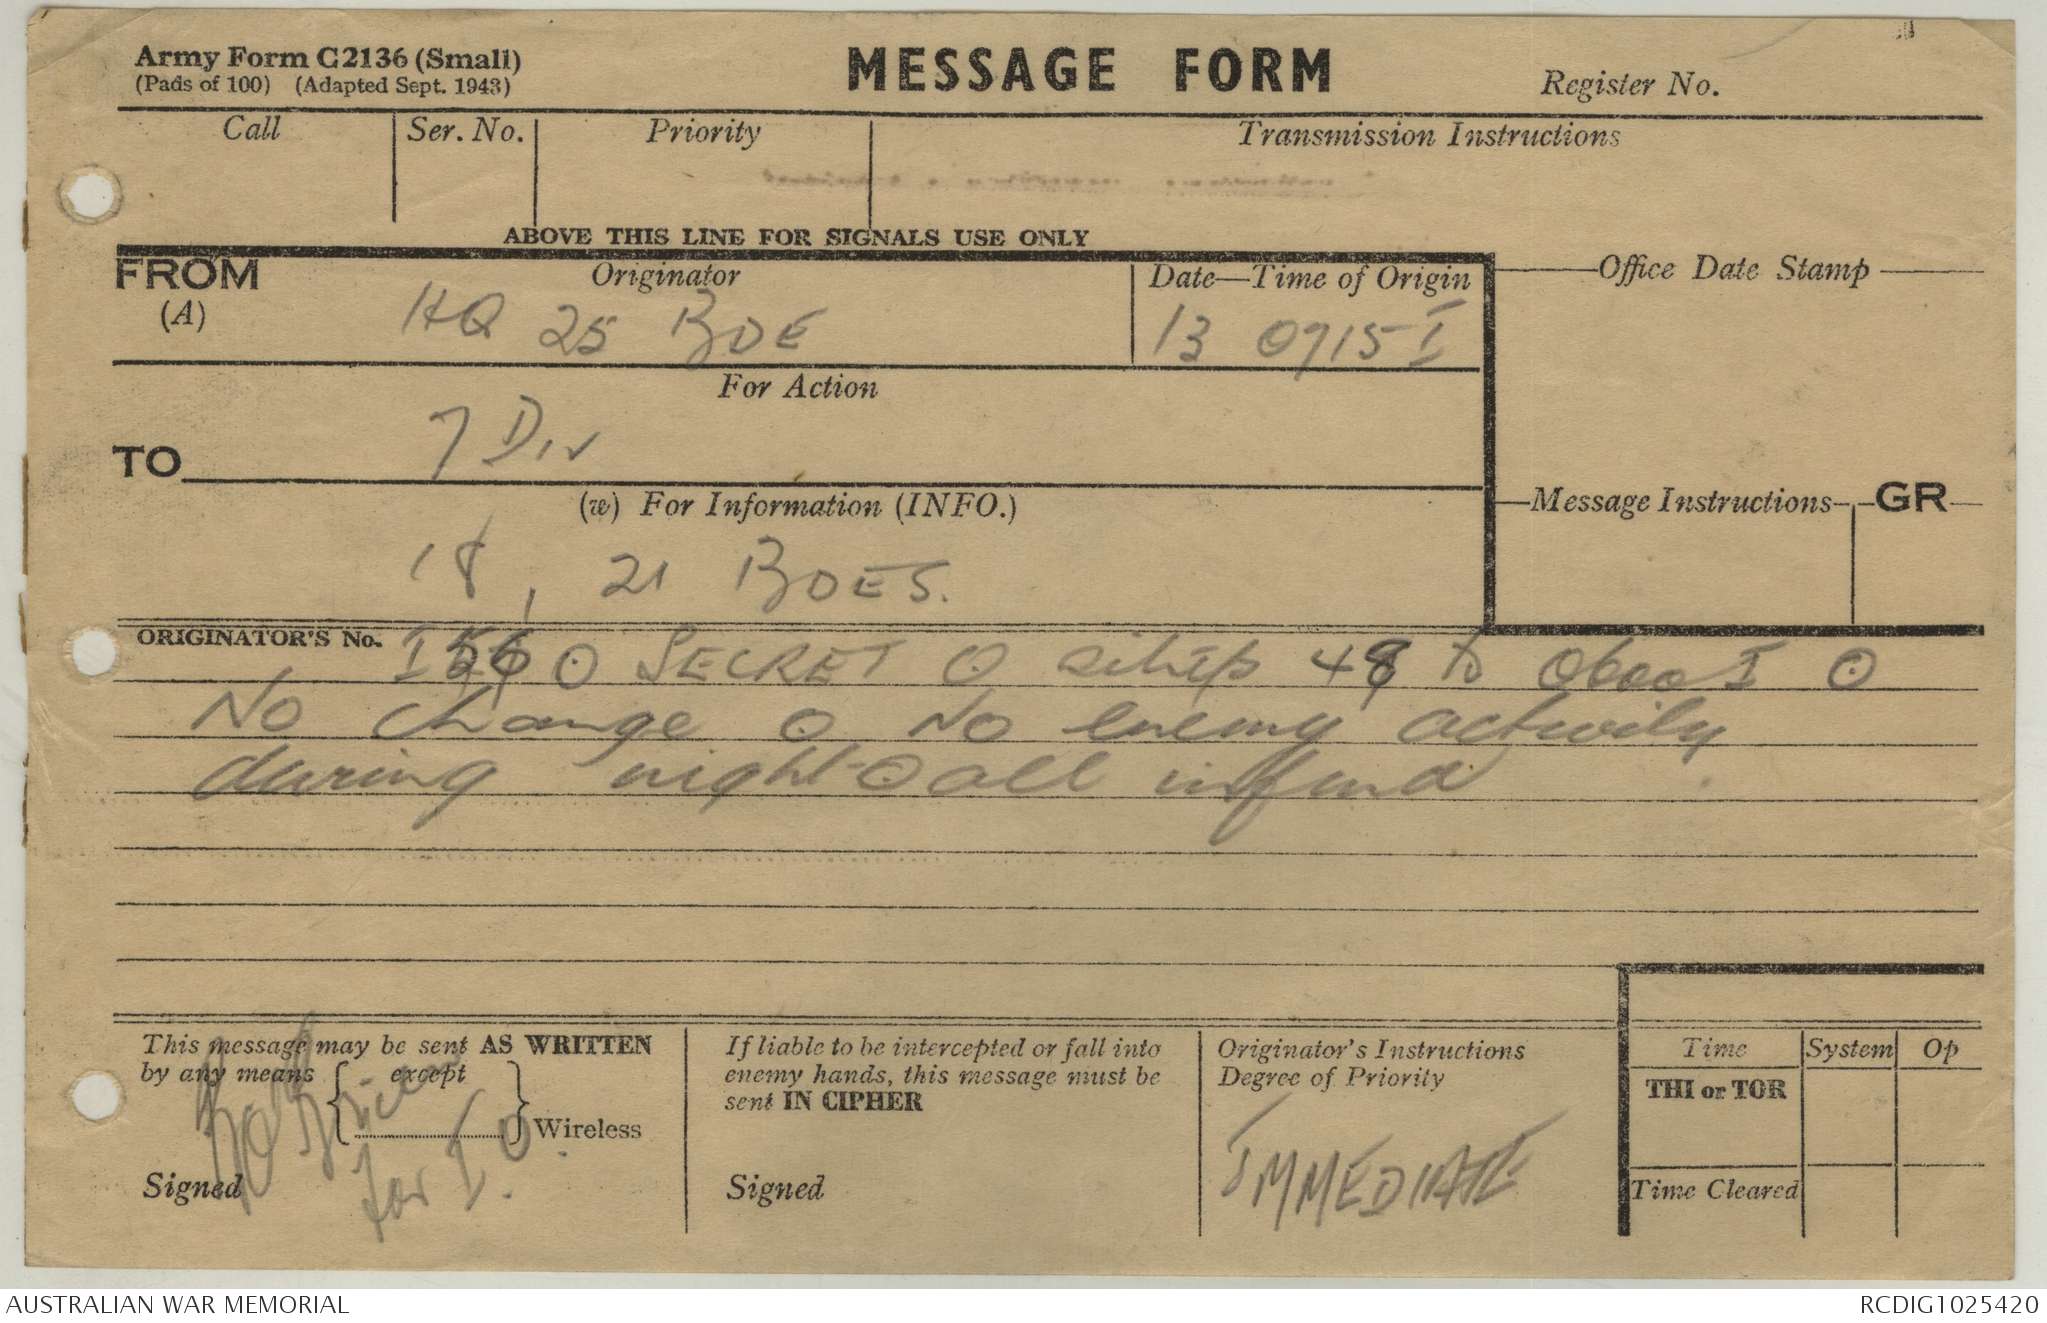 Army Form C2136 (Small)
(Pads of 100) (Adapted Sept. 1943)
MESSAGE FORM
Register No.
Call Ser. No. Priority Transmission Instructions
ABOVE THIS LINE FOR SIGNALS USE ONLY
FROM
(A)
Originator
HQ 25 BDE
Date—Time of Origin
13 0715 I
Office Date Stamp
For Action
TO
7 Div
(w) For Information (INFO.)
18, 21 BDES.
Message Instructions GR
ORIGINATOR'S No. I O SECRET O sitrep 48 to 0600I O
No change O No enemy activity
during night O all infmd
This message may be sent AS WRITTEN
by any means except
Wireless
Signed
for I.O.
If liable to be intercepted or fall into
enemy hands, this message must be
sent IN CIPHER
Signed
Originator's Instructions
Degree of Priority
IMMEDIATE
Time System Op
THI or TOR
Time Cleared
AUSTRALIAN WAR MEMORIAL
RCDIG1025420